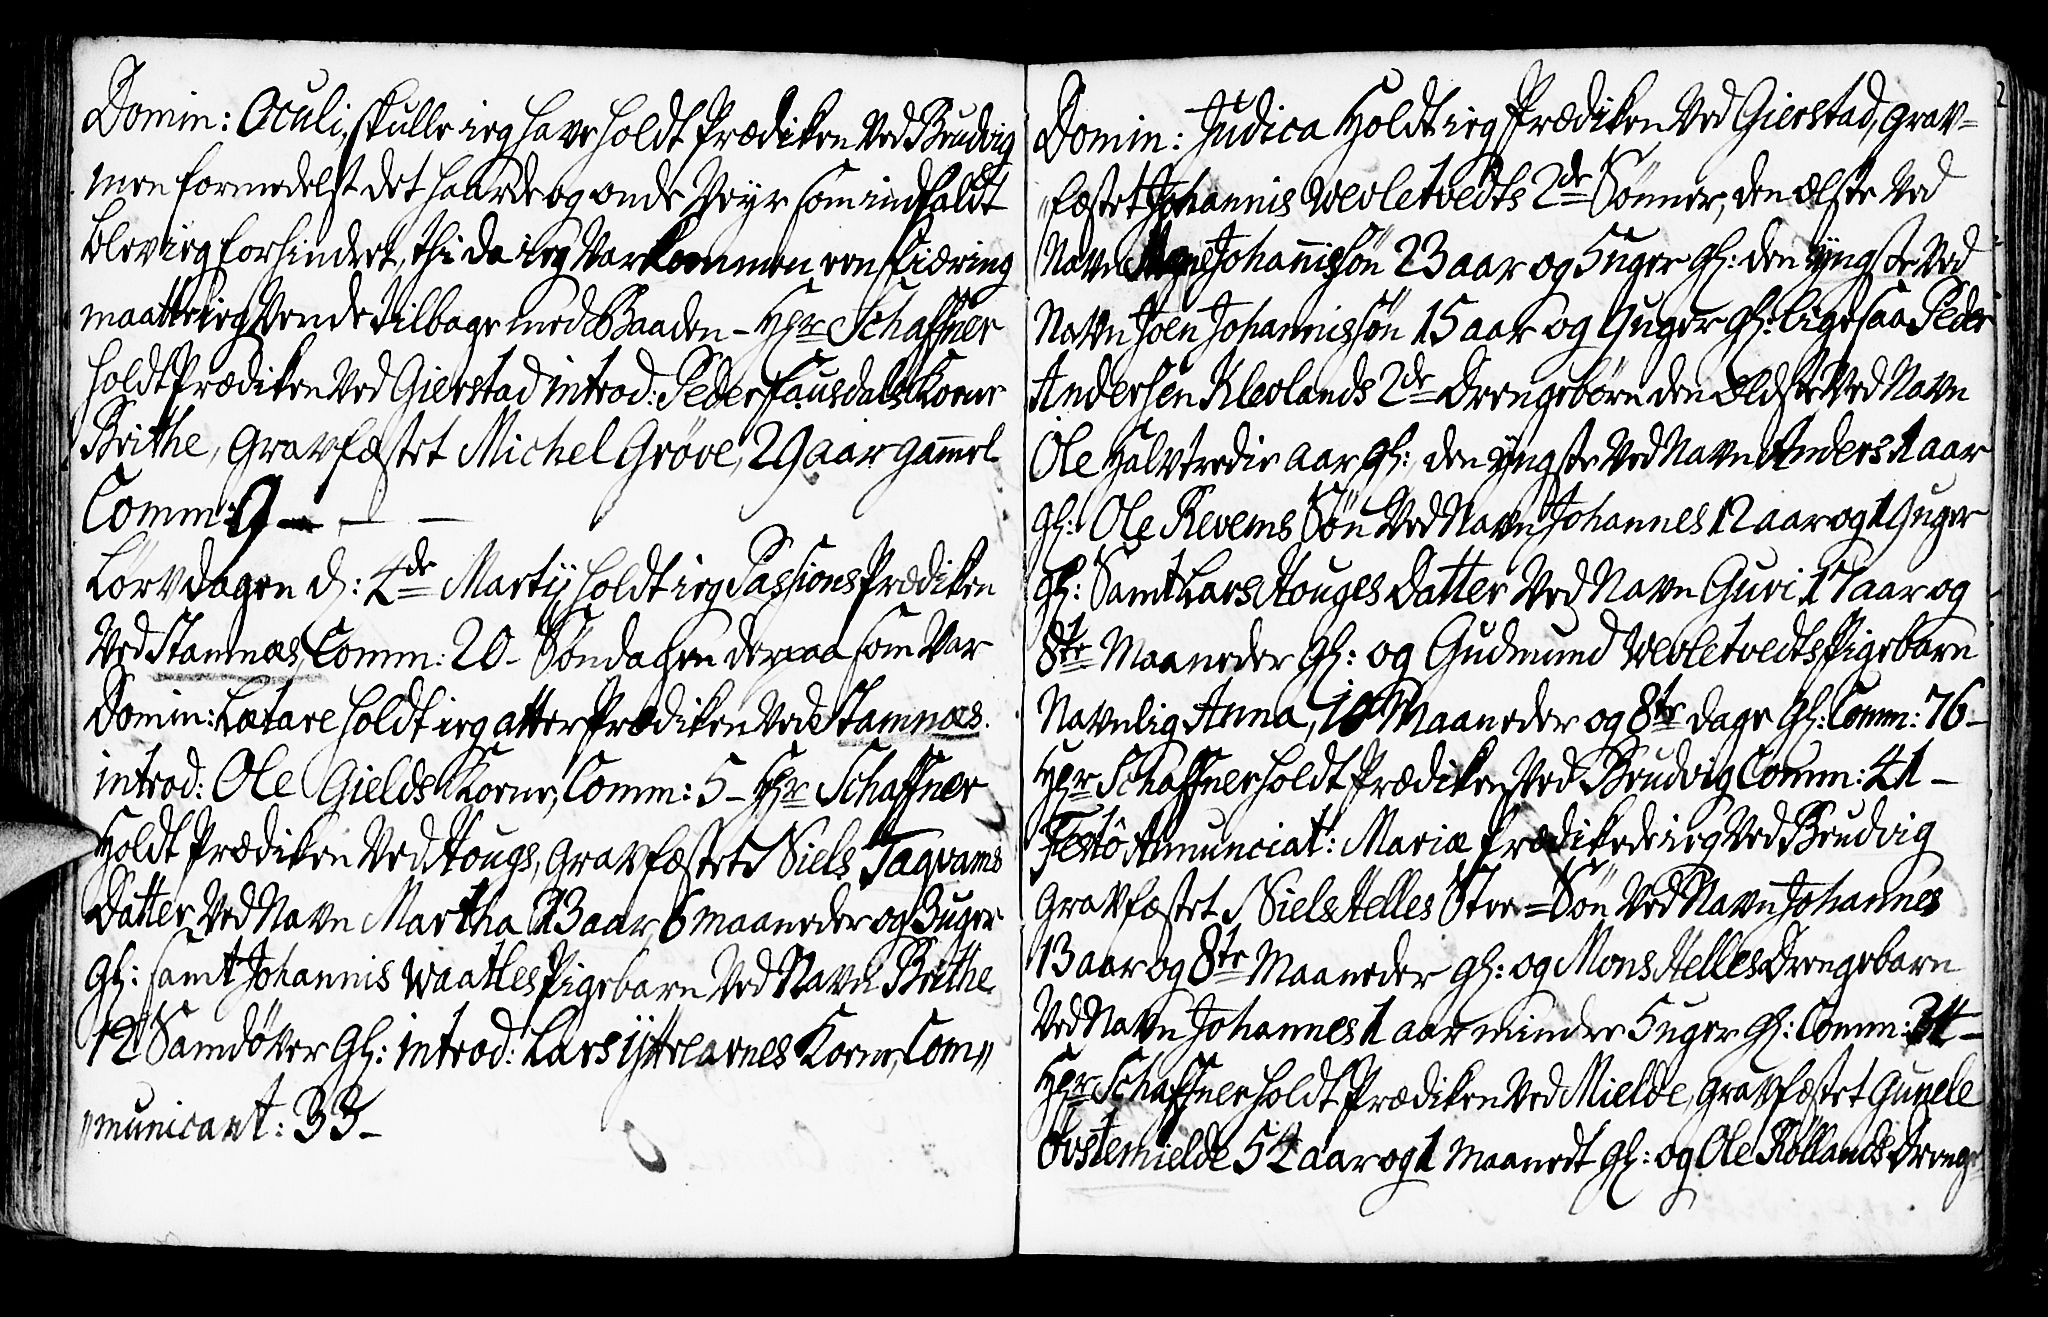 Domin: Oculi, skulle ieg have holdt Prædiken Ved Brudvig
men formedelst det haarde og onde Veyr som indfaldt
blev ieg forhindret, thi da ieg Var kommen een fiæring
maatte ieg Vende tilbage med Baaden – Hr Schaffner
holdt Prædiken Ved Gierstad introd: Peder Fausdals Kone
Brithe, Gravfæstet Michel Grøve, 29 aar gam̄el
Comm: 9 – – –
Løρvdagen d: 4de Martij holdt ieg Passions Prædiken
Ved Stamnæs, Comm: 20 – Søndagen derpaa som Var
Domin: Lætare holdt ieg atter Prædiken Ved Stamnæs.
introd: Ole Gields Kone, Comm: 5 – Hr Schaffner
Holdt Prædiken Ved Hougs, Gravfæstet Niels Tagvams
Datter Ved Navn Martha 23 aar, 6 maaneder og 3 uger
Gl: samt Johannis Waatles Pigebarn Ved Navn Brithe
12 Samdøver Gl: introd: Lars Yttrearnes Kone, Com„
„municant: 33 –
Domin: Judica Holdt ieg Prædiken Ved Gierstad, Grav=
„fæstet Johannis Wevletvedts 2de Sønner, den ælste Ved
Navn Mons Johannissøn 23 aar og 5 uger Gl: den yngste Ved
Navn Joen Johannissøn 15 aar og 9 uger Gl: ligesaa Peder
Andersen Klevlands 2de Drengebørn den ældste Ved Navn
Ole Halvtredie aar Gl:, den yngste Ved Navn Anders 1 aar
Gl: Ole Revems Søn Ved Navn Johannes 12 aar og 19 uger
Gl: Samt Lars Houges Datter Ved Navn Guri 17 aar og
8te Maaneder Gl: og Gudmund Wevletvedts Pigebarn
Navnlig Anna, 10 Maaneder og 8te dage Gl: Comm: 76 –
Hr Schaffner holdt Prædiken Ved Brudvig Comm: 41 –
Festô Annunciat: Mariæ Prædikede ieg Ved Brudvig
Gravfæstet Niels Helles Stee=Søn Ved Navn Johannes
13 aar og 8te Maaneder Gl: og Mons Helles Drengebarn
Ved Navn Johannes 1 aar mindre 5 uger Gl: Comm: 34 –
Hr Schaffner holdt Prædiken Ved Mielde, Gravfæstet Gunele
Øvstemielde 54 aar og 1 Maanedt Gl: og Ole Røllands Drenge